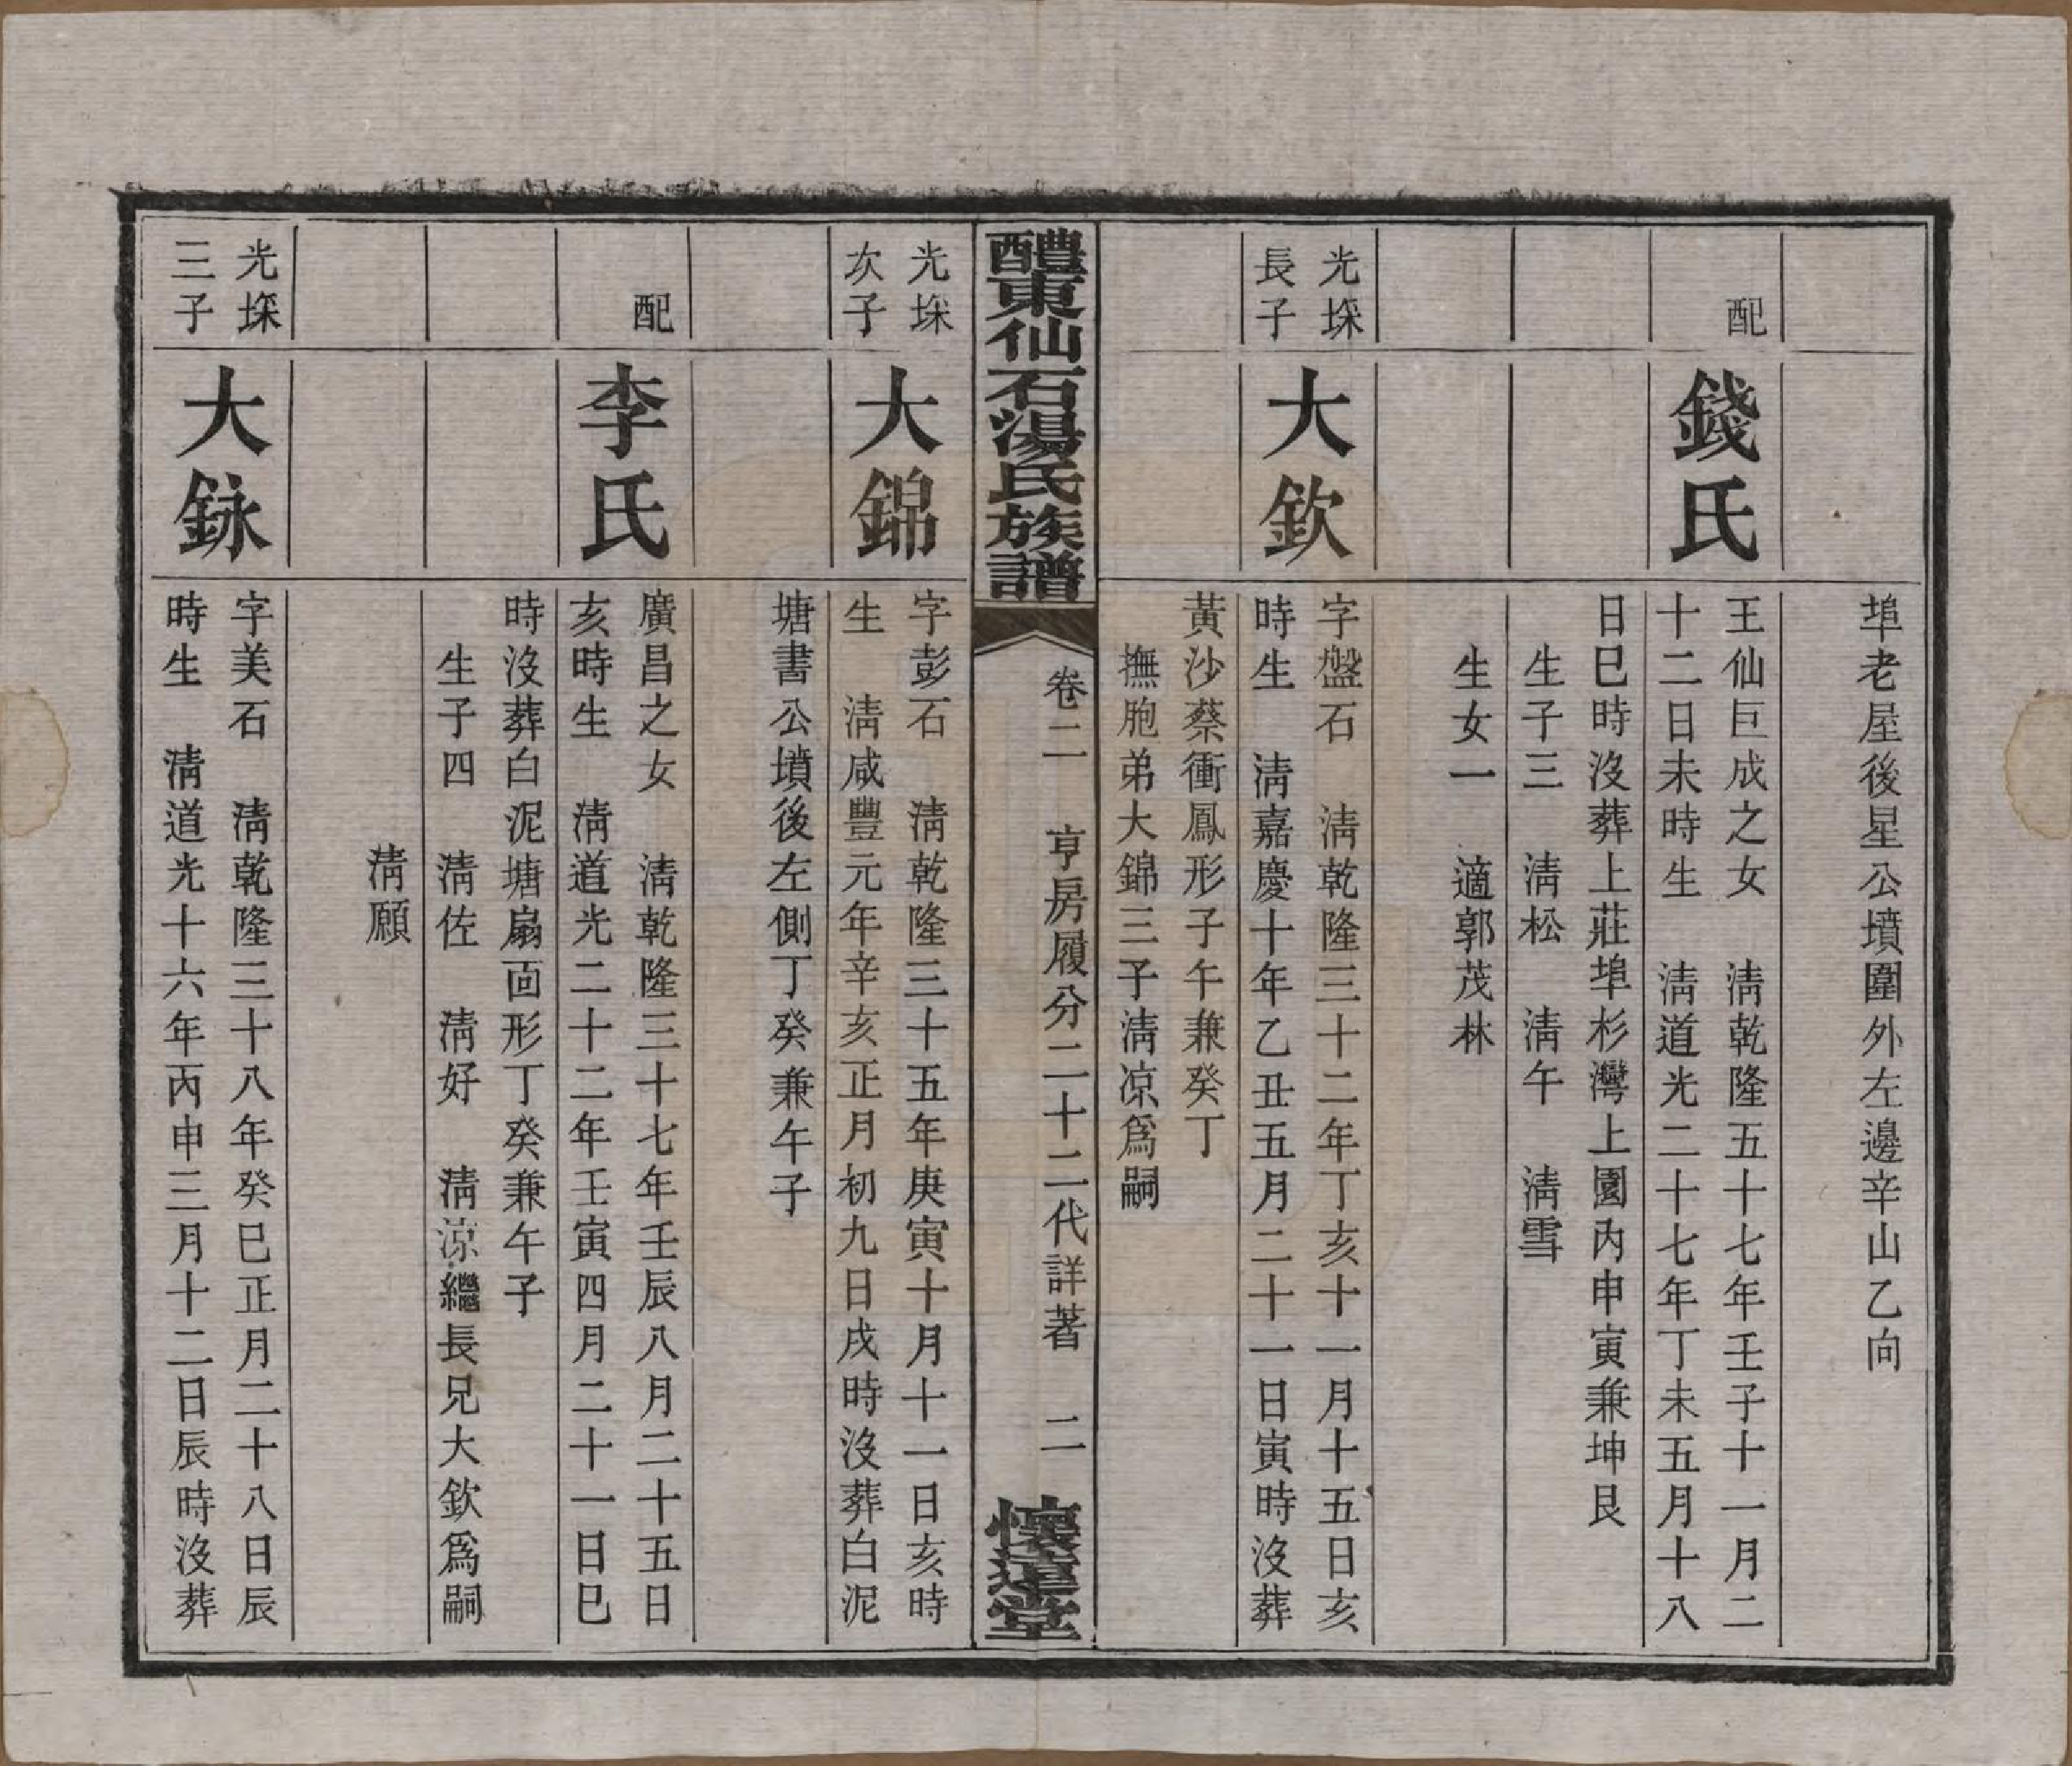 埠老屋後星公墳圍外左邊辛山乙向
配
錢氏
王仙巨成之女　淸乾隆五十七年壬子十一月二
十二日未時生　淸道光二十七年丁未五月十八
日巳時沒葬上莊埠杉灣上園內申寅兼坤艮
生子三　淸松　淸午　淸雪
生女一　適郭茂林
光埰
長子
大欽
字盤石　淸乾隆三十二年丁亥十一月十五日亥
時生　淸嘉慶十年乙丑五月二十一日寅時沒葬
黃沙蔡衝鳳形子午兼癸丁
撫胞弟大錦三子淸凉爲嗣
醴東仙石湯氏族譜
卷二　亨房履分二十二代詳著　二
懷遠堂
光埰
次子
大錦
字彭石　淸乾隆三十五年庚寅十月十一日亥時
生　淸咸豐元年辛亥正月初九日戌時沒葬白泥
塘書公墳後左側丁癸兼午子
配
李氏
廣昌之女　淸乾隆三十七年壬辰八月二十五日
亥時生　淸道光二十二年壬寅四月二十一日巳
時沒葬白泥塘扇面形丁癸兼午子
生子四　淸佐　淸好　淸凉繼長兄大欽爲嗣
淸願
光埰
三子
大銶
字美石　淸乾隆三十八年癸巳正月二十八日辰
時生　淸道光十六年丙申三月十二日辰時沒葬